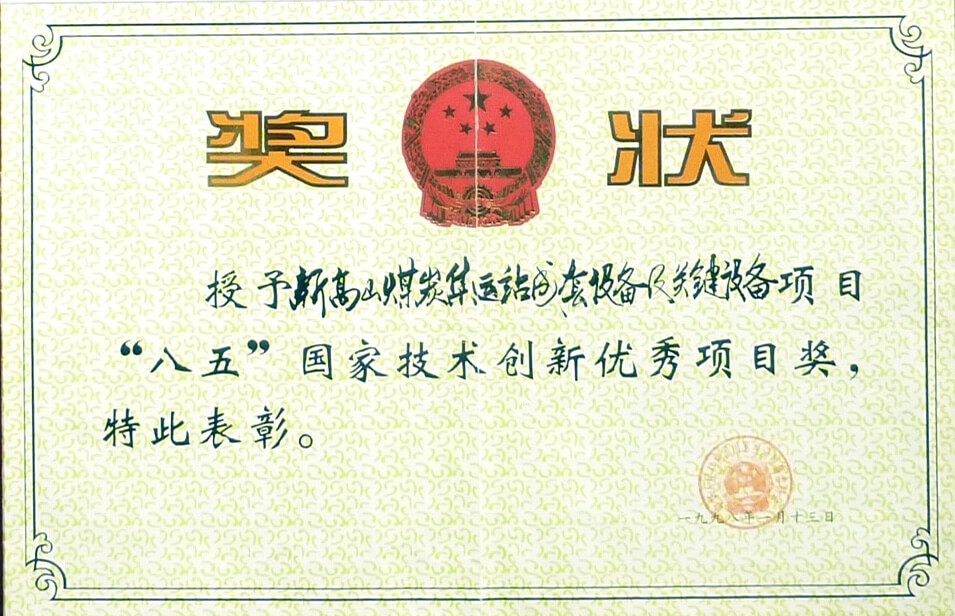 奖状
授予新高山煤炭集运站成套设备及关键设备项目
“八五”国家技术创新优秀项目奖，
特此表彰。
一九九八年一月十三日